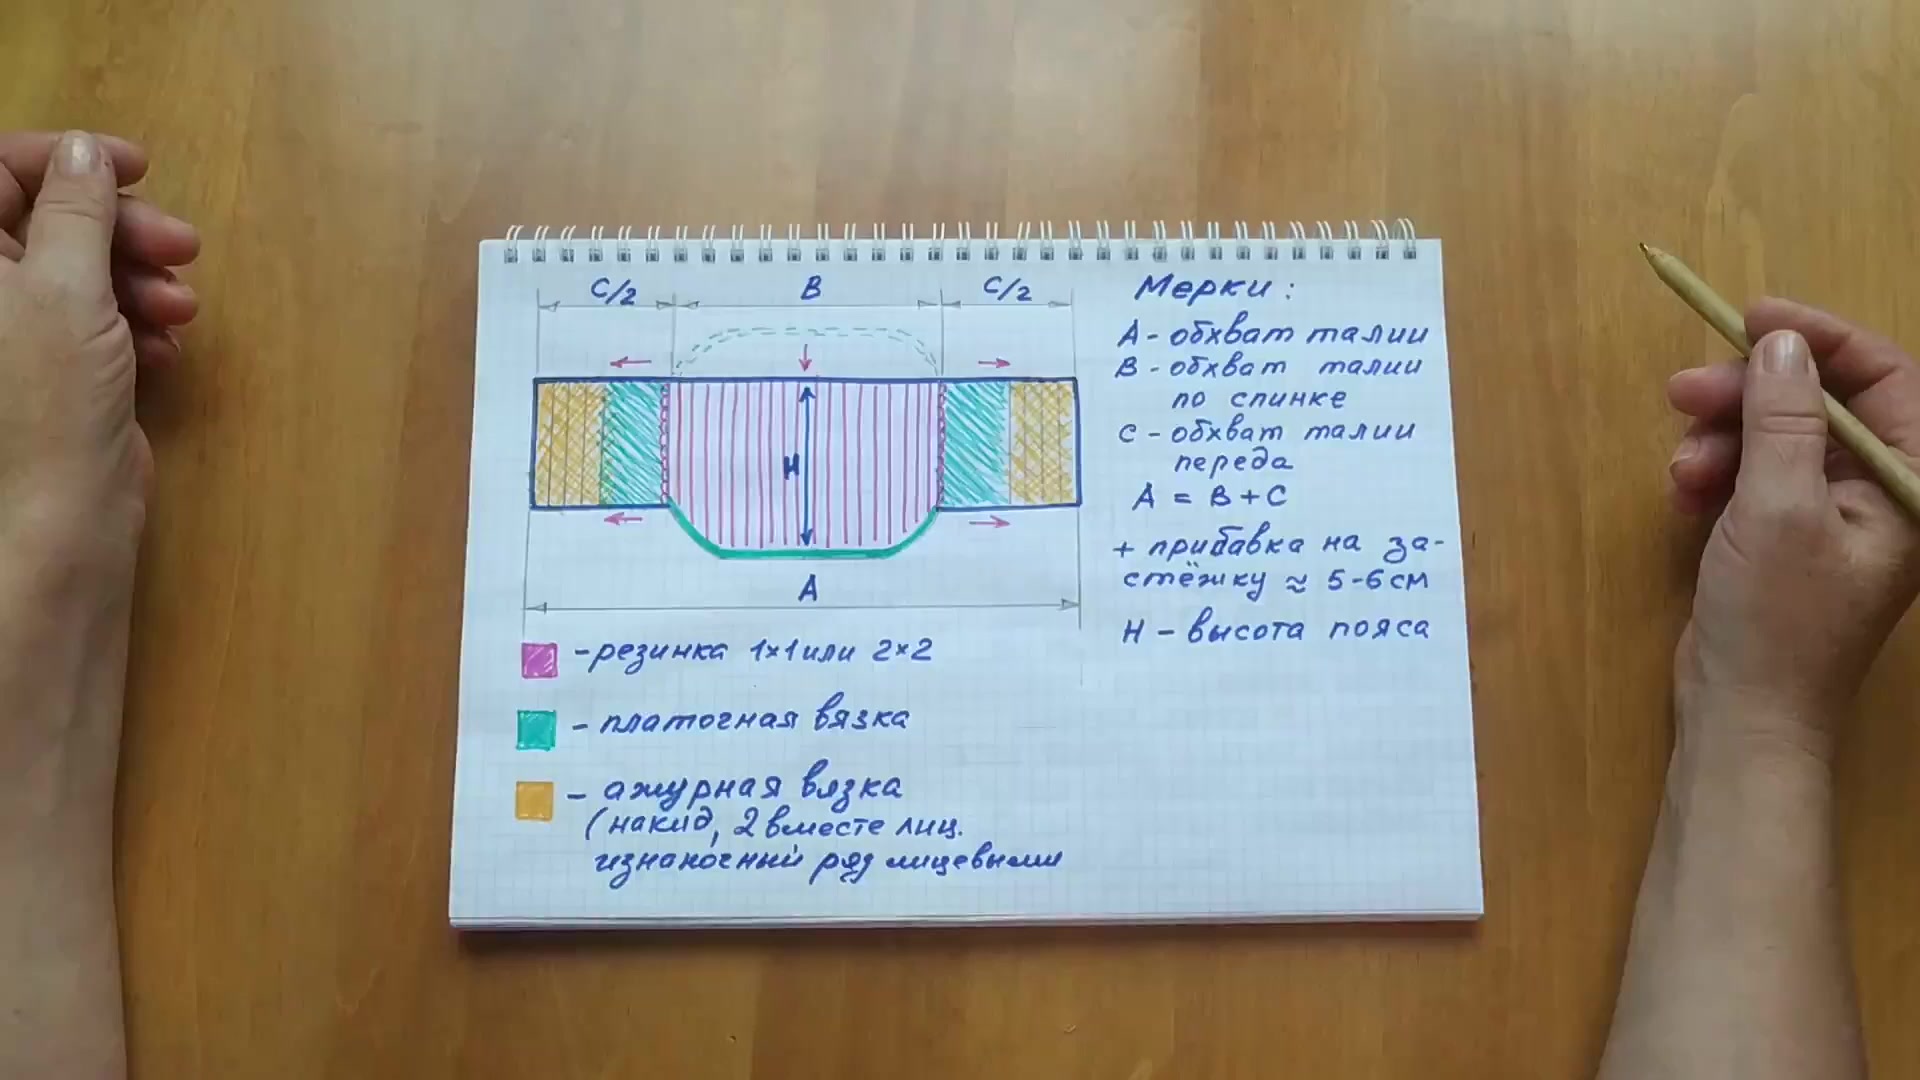 C/2 B C/2
H
A
- резинка 1×1 или 2×2
- платочная вязка
- ажурная вязка
(накид, 2 вместе лиц.
изнаночный ряд лицевыми
Мерки:
А - обхват талии
В - обхват талии
по спинке
С - обхват талии
переда
А = В + С
+ прибавка на за-
стёжку ≈ 5-6 см
Н - высота пояса